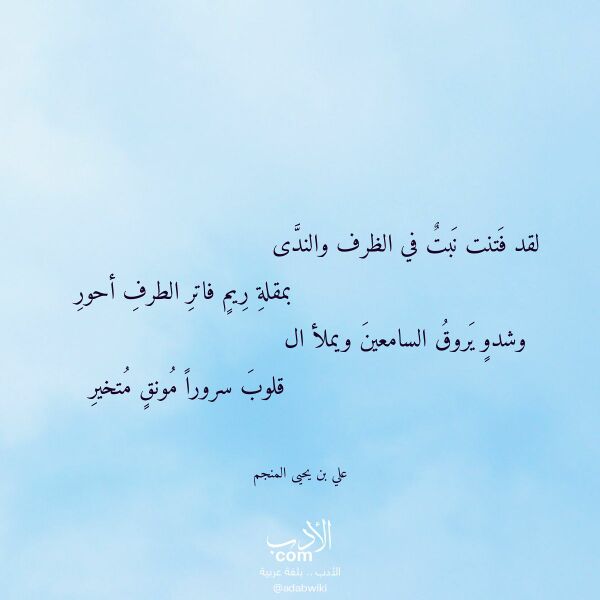 لقد فَتنت نَبتٌ في الظرف والندَّى
بمقلةِ رِيمٍ فاترِ الطرفِ أحورِ
وشدوٍ يَروقُ السامعينَ ويملأ ال
قلوبَ سروراً مُونقٍ مُتخيرِ
علي بن يحيى المنجم
الأدب
com
الأدب .. بلغة عربية
@adabwiki